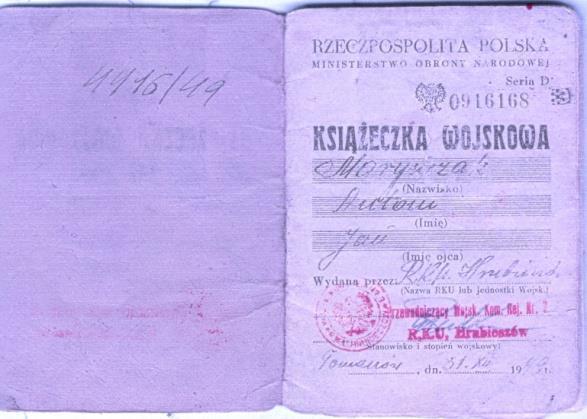 4416/49
RZECZPOSPOLITA POLSKA
MINISTERSTWO OBRONY NARODOWEJ
Seria D
0916168
KSIĄŻECZKA WOJSKOWA
(Nazwisko)
Antoni
(Imię)
Jan
(Imię ojca)
Wydana przez: R.K.U. Hrubieszów
(Nazwa RKU lub jednostki Wojsk.)
Przewodniczący Wojsk. Kom. Rej. Nr. 2
R.K.U. Hrubieszów
Stanowisko i stopień wojskowy:
dn. 31.XII 1949 r.